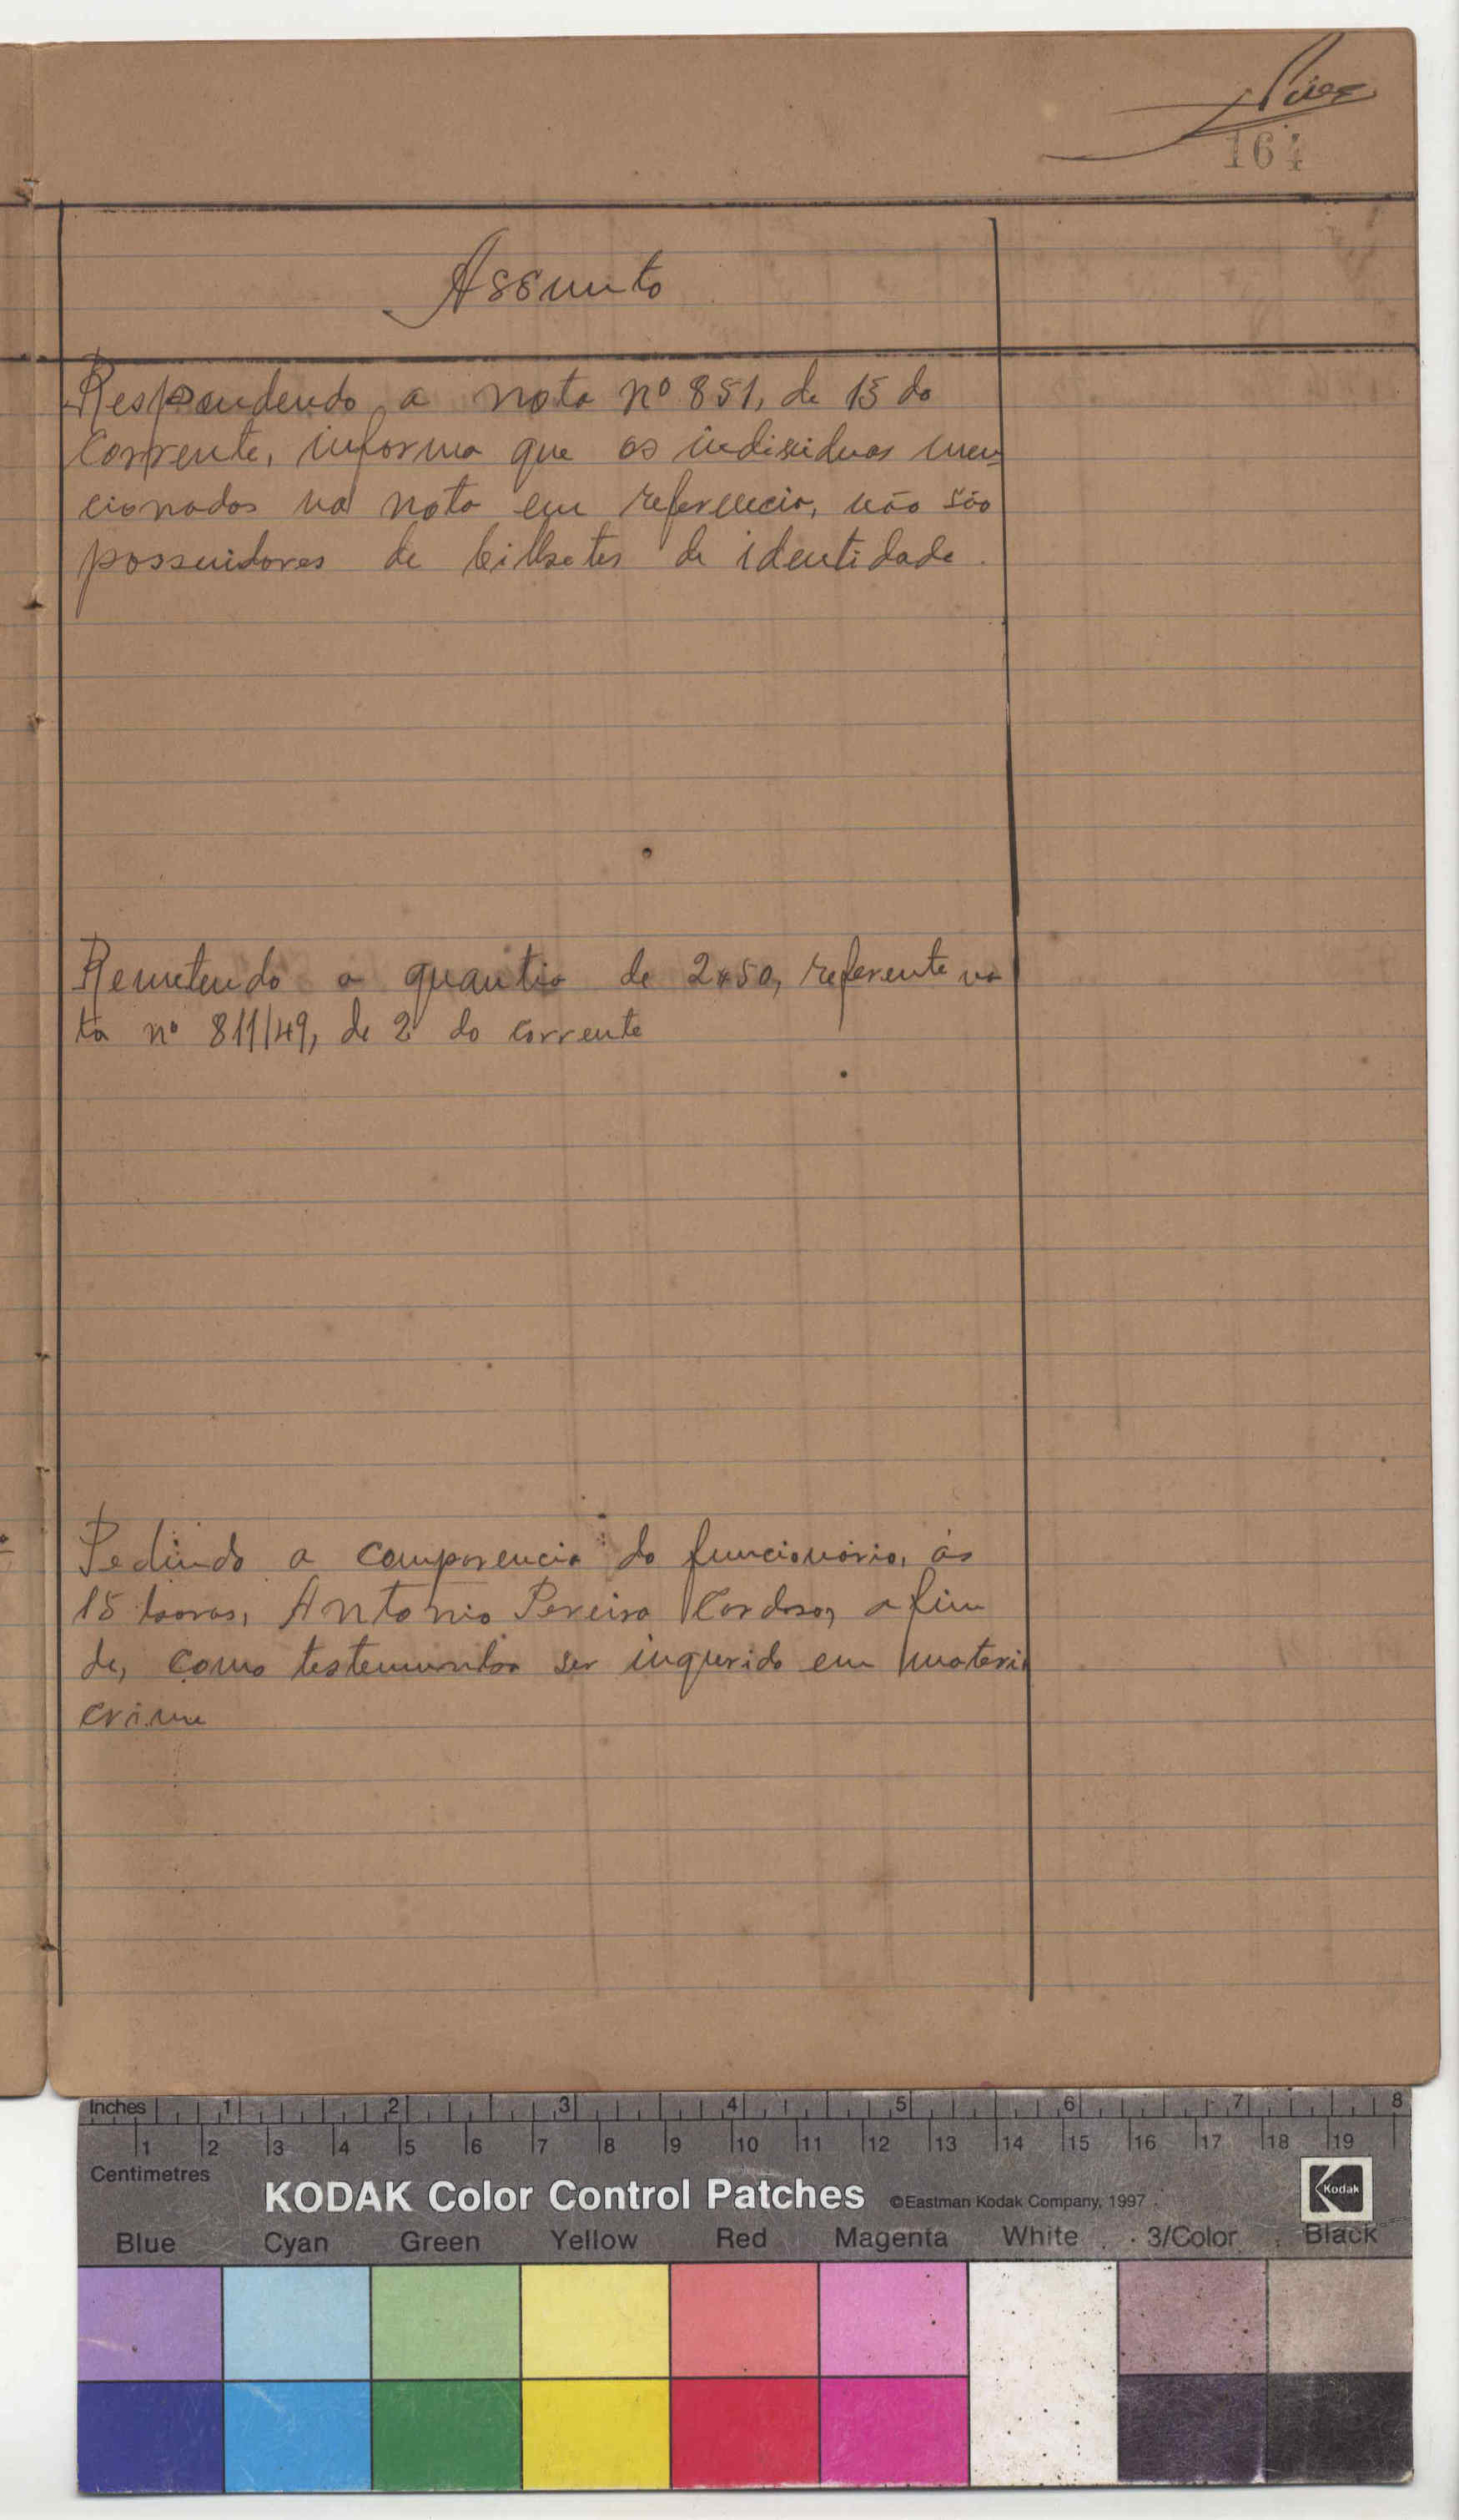 164
Assunto
Respondendo a nota nº 851, de 15 do
corrente, informa que os individuos men-
cionados na nota em referencia, não são
possuidores de bilhetes de identidade.
Remetendo a quantia de 2$50, referente no
ta nº 811/49, de 2 do corrente
Pedindo a comparencia do funcionário, ás
15 horas, Antonio Pereira Cardoso, afim
de, como testemunha ser inquerido em materia
crime
Inches 1 2 3 4 5 6 7 8
1 2 3 4 5 6 7 8 9 10 11 12 13 14 15 16 17 18 19
Centimetres
KODAK Color Control Patches ©Eastman Kodak Company, 1997 Kodak
Blue Cyan Green Yellow Red Magenta White 3/Color Black